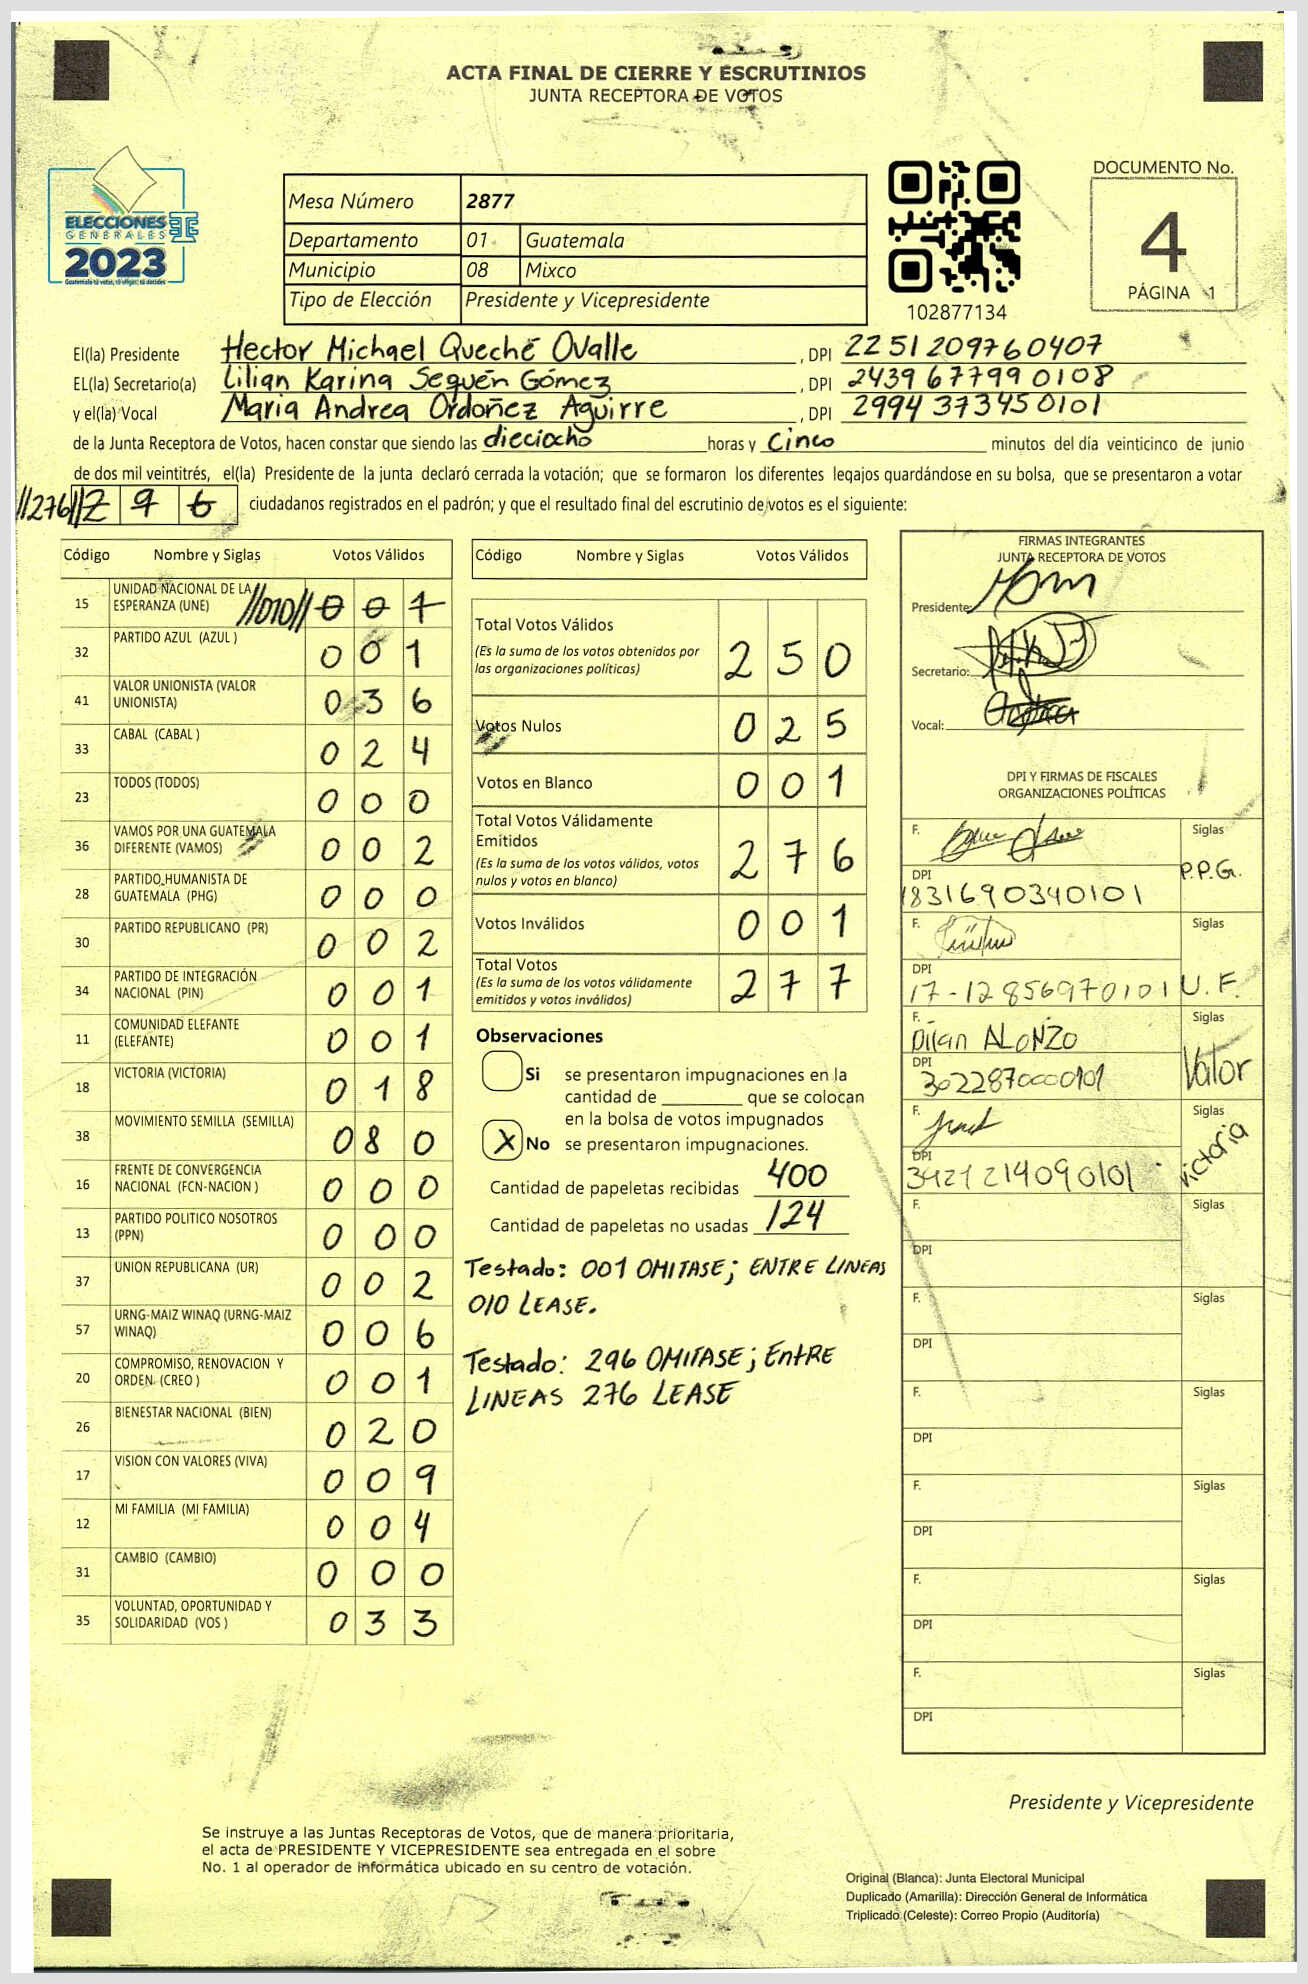 ACTA FINAL DE CIERRE Y ESCRUTINIOS
JUNTA RECEPTORA DE VOTOS
ELECCIONES
GENERALES
2023
Guatemala tú votas, tú eliges, tú decides
Mesa Número 2877
Departamento 01 Guatemala
Municipio 08 Mixco
Tipo de Elección Presidente y Vicepresidente
102877134
DOCUMENTO No.
4
PÁGINA 1
El(la) Presidente Hector Michael Queché Ovalle , DPI 2251209760407
EL(la) Secretario(a) Lilian Karina Seguén Gómez , DPI 2439677990108
y el(la) Vocal Maria Andrea Ordoñez Aguirre , DPI 2994373450101
de la Junta Receptora de Votos, hacen constar que siendo las dieciocho horas y cinco minutos del día veinticinco de junio
de dos mil veintitrés, el(la) Presidente de la junta declaró cerrada la votación; que se formaron los diferentes legajos guardándose en su bolsa, que se presentaron a votar
//276// 2 9 6 ciudadanos registrados en el padrón; y que el resultado final del escrutinio de votos es el siguiente:
Código Nombre y Siglas Votos Válidos
15 UNIDAD NACIONAL DE LA
ESPERANZA (UNE) //010// 0 0 1
32 PARTIDO AZUL (AZUL ) 0 0 1
41 VALOR UNIONISTA (VALOR
UNIONISTA) 0 3 6
33 CABAL (CABAL ) 0 2 4
23 TODOS (TODOS) 0 0 0
36 VAMOS POR UNA GUATEMALA
DIFERENTE (VAMOS) 0 0 2
28 PARTIDO HUMANISTA DE
GUATEMALA (PHG) 0 0 0
30 PARTIDO REPUBLICANO (PR) 0 0 2
34 PARTIDO DE INTEGRACIÓN
NACIONAL (PIN) 0 0 1
11 COMUNIDAD ELEFANTE
(ELEFANTE) 0 0 1
18 VICTORIA (VICTORIA) 0 1 8
38 MOVIMIENTO SEMILLA (SEMILLA) 0 8 0
16 FRENTE DE CONVERGENCIA
NACIONAL (FCN-NACION ) 0 0 0
13 PARTIDO POLITICO NOSOTROS
(PPN) 0 0 0
37 UNION REPUBLICANA (UR) 0 0 2
57 URNG-MAIZ WINAQ (URNG-MAIZ
WINAQ) 0 0 6
20 COMPROMISO, RENOVACION Y
ORDEN (CREO ) 0 0 1
26 BIENESTAR NACIONAL (BIEN) 0 2 0
17 VISION CON VALORES (VIVA) 0 0 9
12 MI FAMILIA (MI FAMILIA) 0 0 4
31 CAMBIO (CAMBIO) 0 0 0
35 VOLUNTAD, OPORTUNIDAD Y
SOLIDARIDAD (VOS ) 0 3 3
Código Nombre y Siglas Votos Válidos
Total Votos Válidos
(Es la suma de los votos obtenidos por
las organizaciones políticas) 2 5 0
Votos Nulos 0 2 5
Votos en Blanco 0 0 1
Total Votos Válidamente
Emitidos
(Es la suma de los votos válidos, votos
nulos y votos en blanco) 2 7 6
Votos Inválidos 0 0 1
Total Votos
(Es la suma de los votos válidamente
emitidos y votos inválidos) 2 7 7
Observaciones
Si se presentaron impugnaciones en la
cantidad de ________ que se colocan
en la bolsa de votos impugnados
X No se presentaron impugnaciones.
Cantidad de papeletas recibidas 400
Cantidad de papeletas no usadas 124
Testado: 001 OMITASE; ENTRE LINEAS
010 LEASE.
Testado: 296 OMITASE; ENTRE
LINEAS 276 LEASE
FIRMAS INTEGRANTES
JUNTA RECEPTORA DE VOTOS
Presidente:
Secretario:
Vocal:
DPI Y FIRMAS DE FISCALES
ORGANIZACIONES POLÍTICAS
F. Siglas
DPI P.P.G.
1831690340101
F. Siglas
DPI
17-12856970101 U.F.
F. Siglas
Dilan ALONZO
DPI Valor
3022870000101
F. Siglas
DPI victoria
3421214090101
F. Siglas
DPI
F. Siglas
DPI
F. Siglas
DPI
F. Siglas
DPI
F. Siglas
DPI
F. Siglas
DPI
Presidente y Vicepresidente
Se instruye a las Juntas Receptoras de Votos, que de manera prioritaria,
el acta de PRESIDENTE Y VICEPRESIDENTE sea entregada en el sobre
No. 1 al operador de informática ubicado en su centro de votación.
Original (Blanca): Junta Electoral Municipal
Duplicado (Amarilla): Dirección General de Informática
Triplicado (Celeste): Correo Propio (Auditoría)